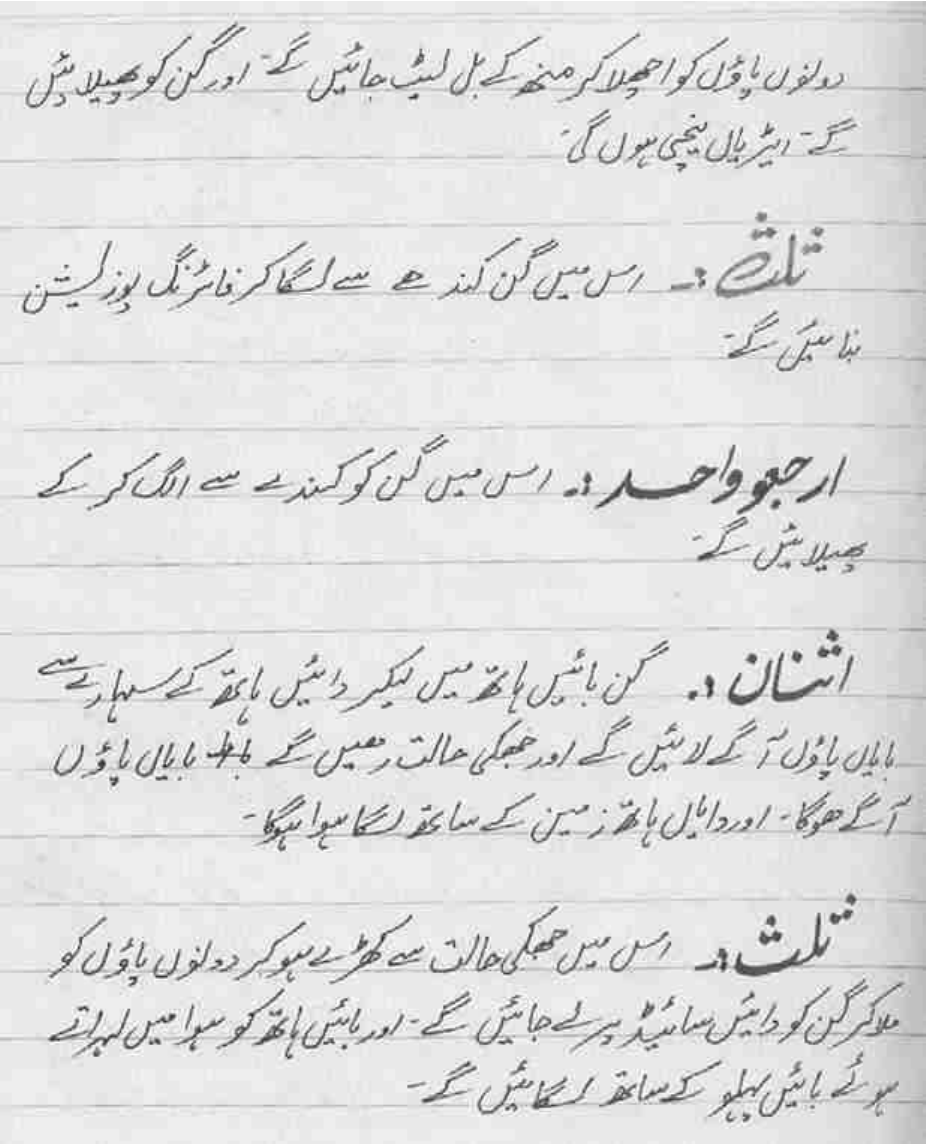 دونوں پاؤں کو اچھلا کر منھ کے بل لیٹ جائیں گے۔ اور گن کو پھیلائیں
گے۔ ایڑیاں نیچی ہوں گی۔
ثلثۃ :۔ اس میں گن کندھے سے لگا کر فائرنگ پوزیشن
بنائیں گے۔
ارجعو واحد :۔ اس میں گن کو کندے سے الگ کر کے
پھیلائیں گے۔
اثنان :۔ گن بائیں ہاتھ میں لیکر دائیں ہاتھ کے سہارے سے
بایاں پاؤں آگے لائیں گے اور جھکی حالت رھیں گے بایاں پاؤں
آگے ھوگا۔ اور دایاں ہاتھ زمین کے ساتھ لگا ہوا ہوگا۔
ثلث :۔ اس میں جھکی حالت سے کھڑے ہو کر دونوں پاؤں کو
ملا کر گن کو دائیں سائیڈ پر لے جائیں گے۔ اور بائیں ہاتھ کو ہوا میں لہراتے
ہوئے بائیں پہلو کے ساتھ لگائیں گے۔